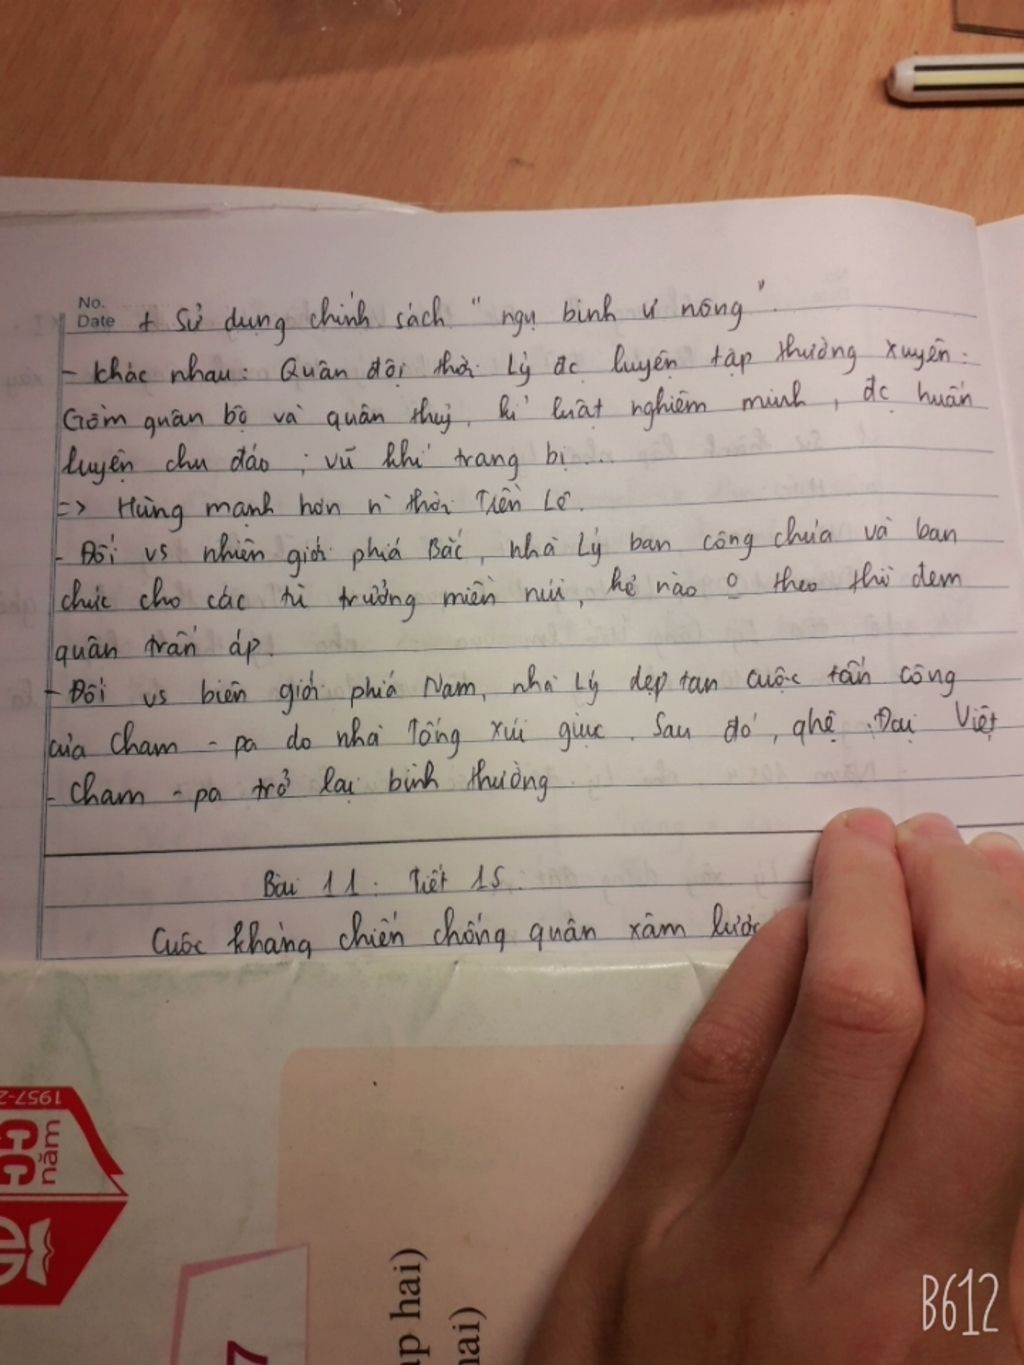 No.
Date + Sử dụng chính sách "ngụ binh ư nông".
- Khác nhau: Quân đội thời Lý đc luyện tập thường xuyên:
Gồm quân bộ và quân thuỷ, kỉ luật nghiêm minh, đc huấn
luyện chu đáo; vũ khí trang bị...
=> Hùng mạnh hơn n thời Tiền Lê.
- Đối vs nhiên giới phiá Bắc, nhà Lý ban công chúa và ban
chức cho các tù trưởng miền núi, kẻ nào 0 theo thì đem
quân trấn áp.
- Đối vs biên giới phiá Nam, nhà Lý dẹp tan cuộc tấn công
của Cham - pa do nhà Tống xúi giục. Sau đó, qhệ Đại Việt
- Cham - pa trở lại bình thường
Bài 11: Tiết 15.
Cuộc kháng chiến chống quân xâm lược
1957-2
năm
7
ập hai)
hai)
B612